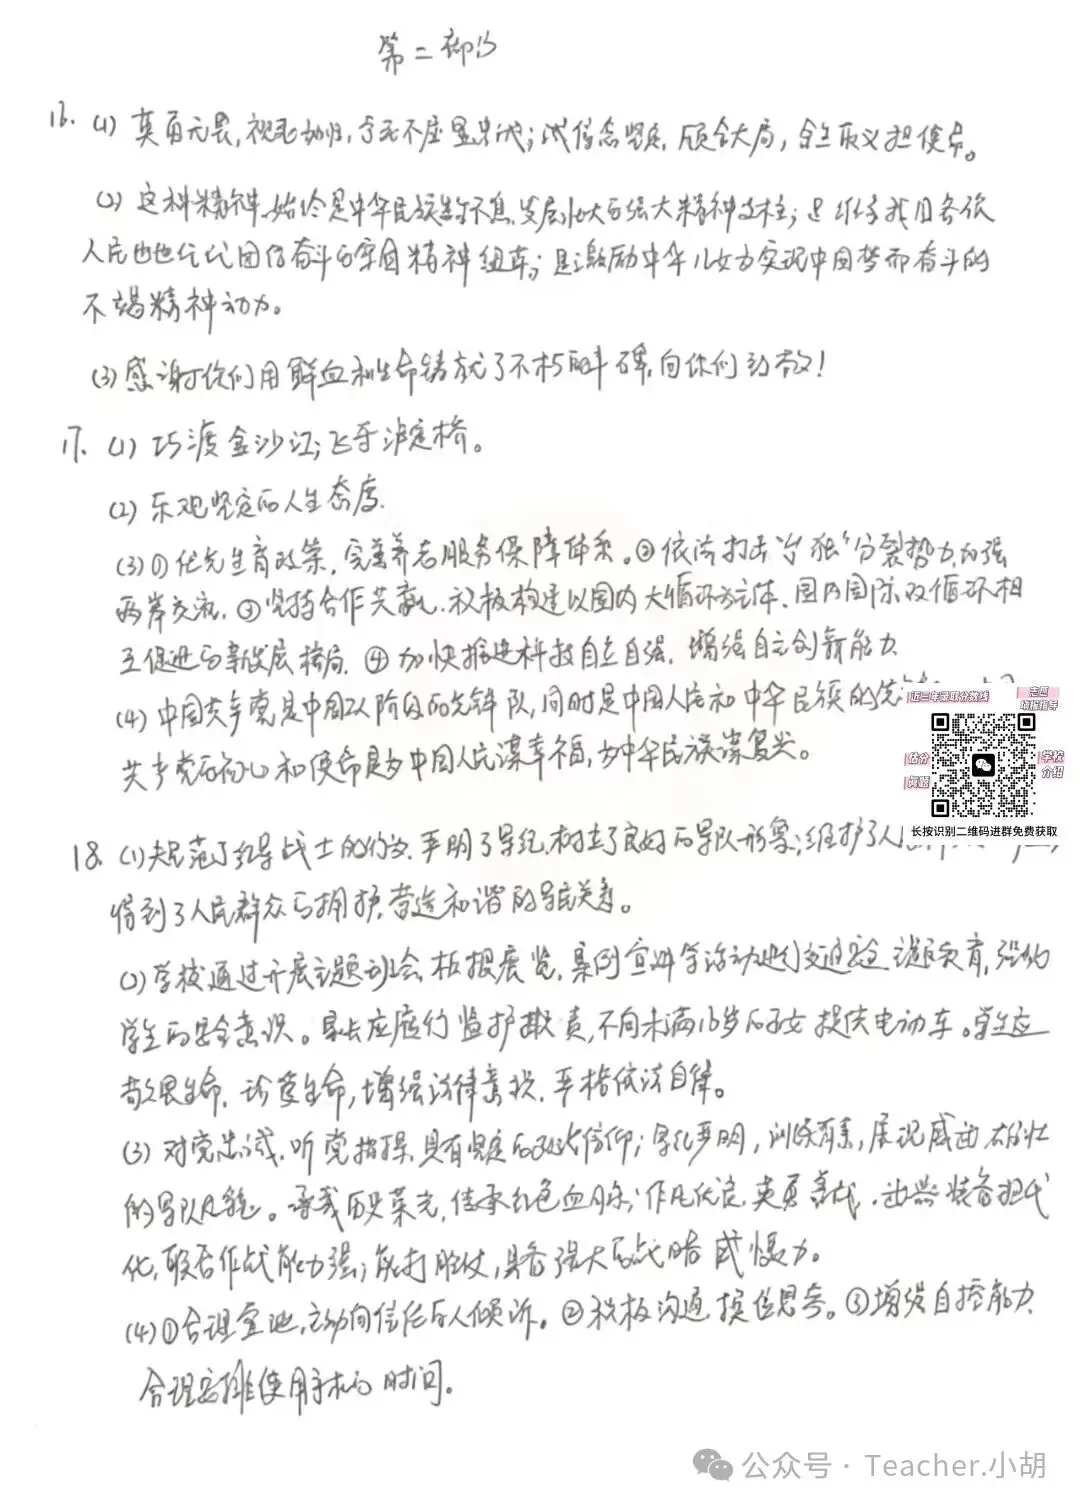 第二部分
16. (1) 英勇无畏,视死如归,宁死不屈显忠诚;诚信念坚贞,顾全大局,舍生取义担使命。
(2) 这种精神始终是中华民族生生不息、发展壮大的强大精神支柱;是维系我国各族
人民世世代代团结奋斗的牢固精神纽带;是激励中华儿女为实现中国梦而奋斗的
不竭精神动力。
(3) 感谢你们用鲜血和生命铸就了不朽的丰碑,向你们致敬!
17. (1) 巧渡金沙江;飞夺泸定桥。
(2) 乐观坚定的人生态度.
(3) ① 优化生育政策,完善养老服务保障体系。② 依法打击“台独”分裂势力,加强
两岸交流. ③ 坚持合作共赢,积极构建以国内大循环为主体、国内国际双循环相
互促进的新发展格局. ④ 加快推进科技自立自强,增强自主创新能力
(4) 中国共产党是中国工人阶级的先锋队,同时是中国人民和中华民族的先
共产党的初心和使命是为中国人民谋幸福,为中华民族谋复兴。
近三年录取分数线
志愿
填报指导
估分
问题
学校
介绍
长按识别二维码进群免费获取
18. (1) 规范了红军战士的行为,严明了军纪,树立了良好的军队形象;维护了人
得到了人民群众的拥护,营造和谐的军民关系。
(2) 学校通过开展主题班会、板报展览、案例宣讲等活动进行交通安全主题教育,强化
学生的安全意识。家长应履行监护职责,不向未满16岁的子女提供电动车。学生应
敬畏生命,珍爱生命,增强法律意识,严格依法自律。
(3) 对党忠诚,听党指挥,具有坚定的政治信仰;军纪严明,训练有素,展现威武雄壮
的军队风貌。承载历史荣光,传承红色血脉;作风优良,英勇善战,武器装备现代
化,联合作战能力强;能打胜仗,具备强大的战略威慑力。
(4) ① 合理宣泄,主动向信任的人倾诉。② 积极沟通,换位思考。③ 增强自控能力,
合理安排使用手机的时间。
公众号 · Teacher.小胡